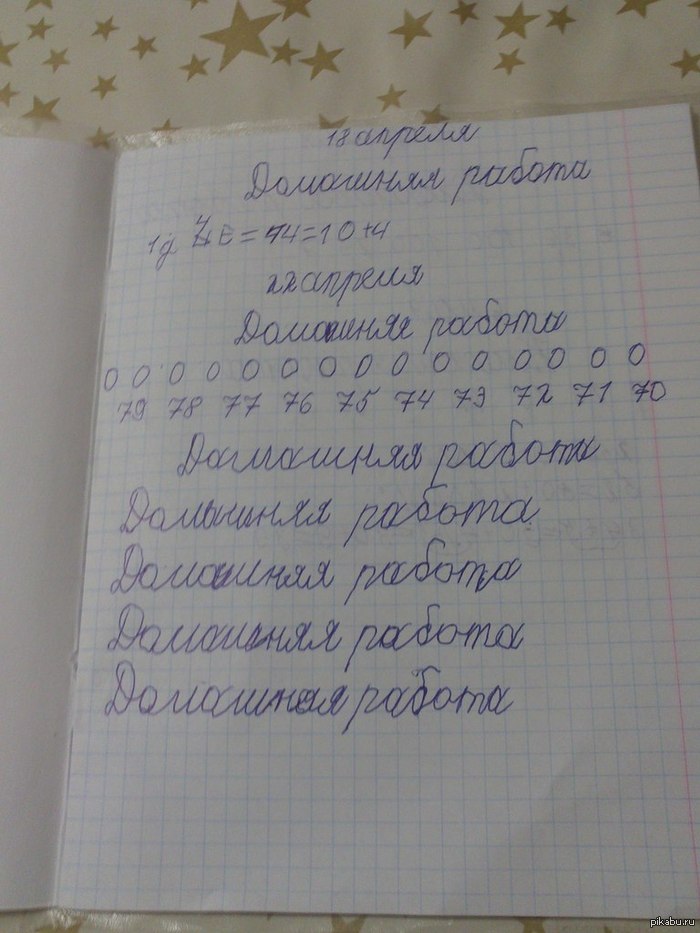 18 апреля
Домашняя работа
1д 4Е = 14 = 10+4
22 апреля
Домашняя работа
0 0 0 0 0 0 0 0 0 0 0 0 0 0 0
79 78 77 76 75 74 73 72 71 70
Дамашняя работа
Домашняя работа
Домашняя работа
Домашняя работа
Домашняя работа
pikabu.ru